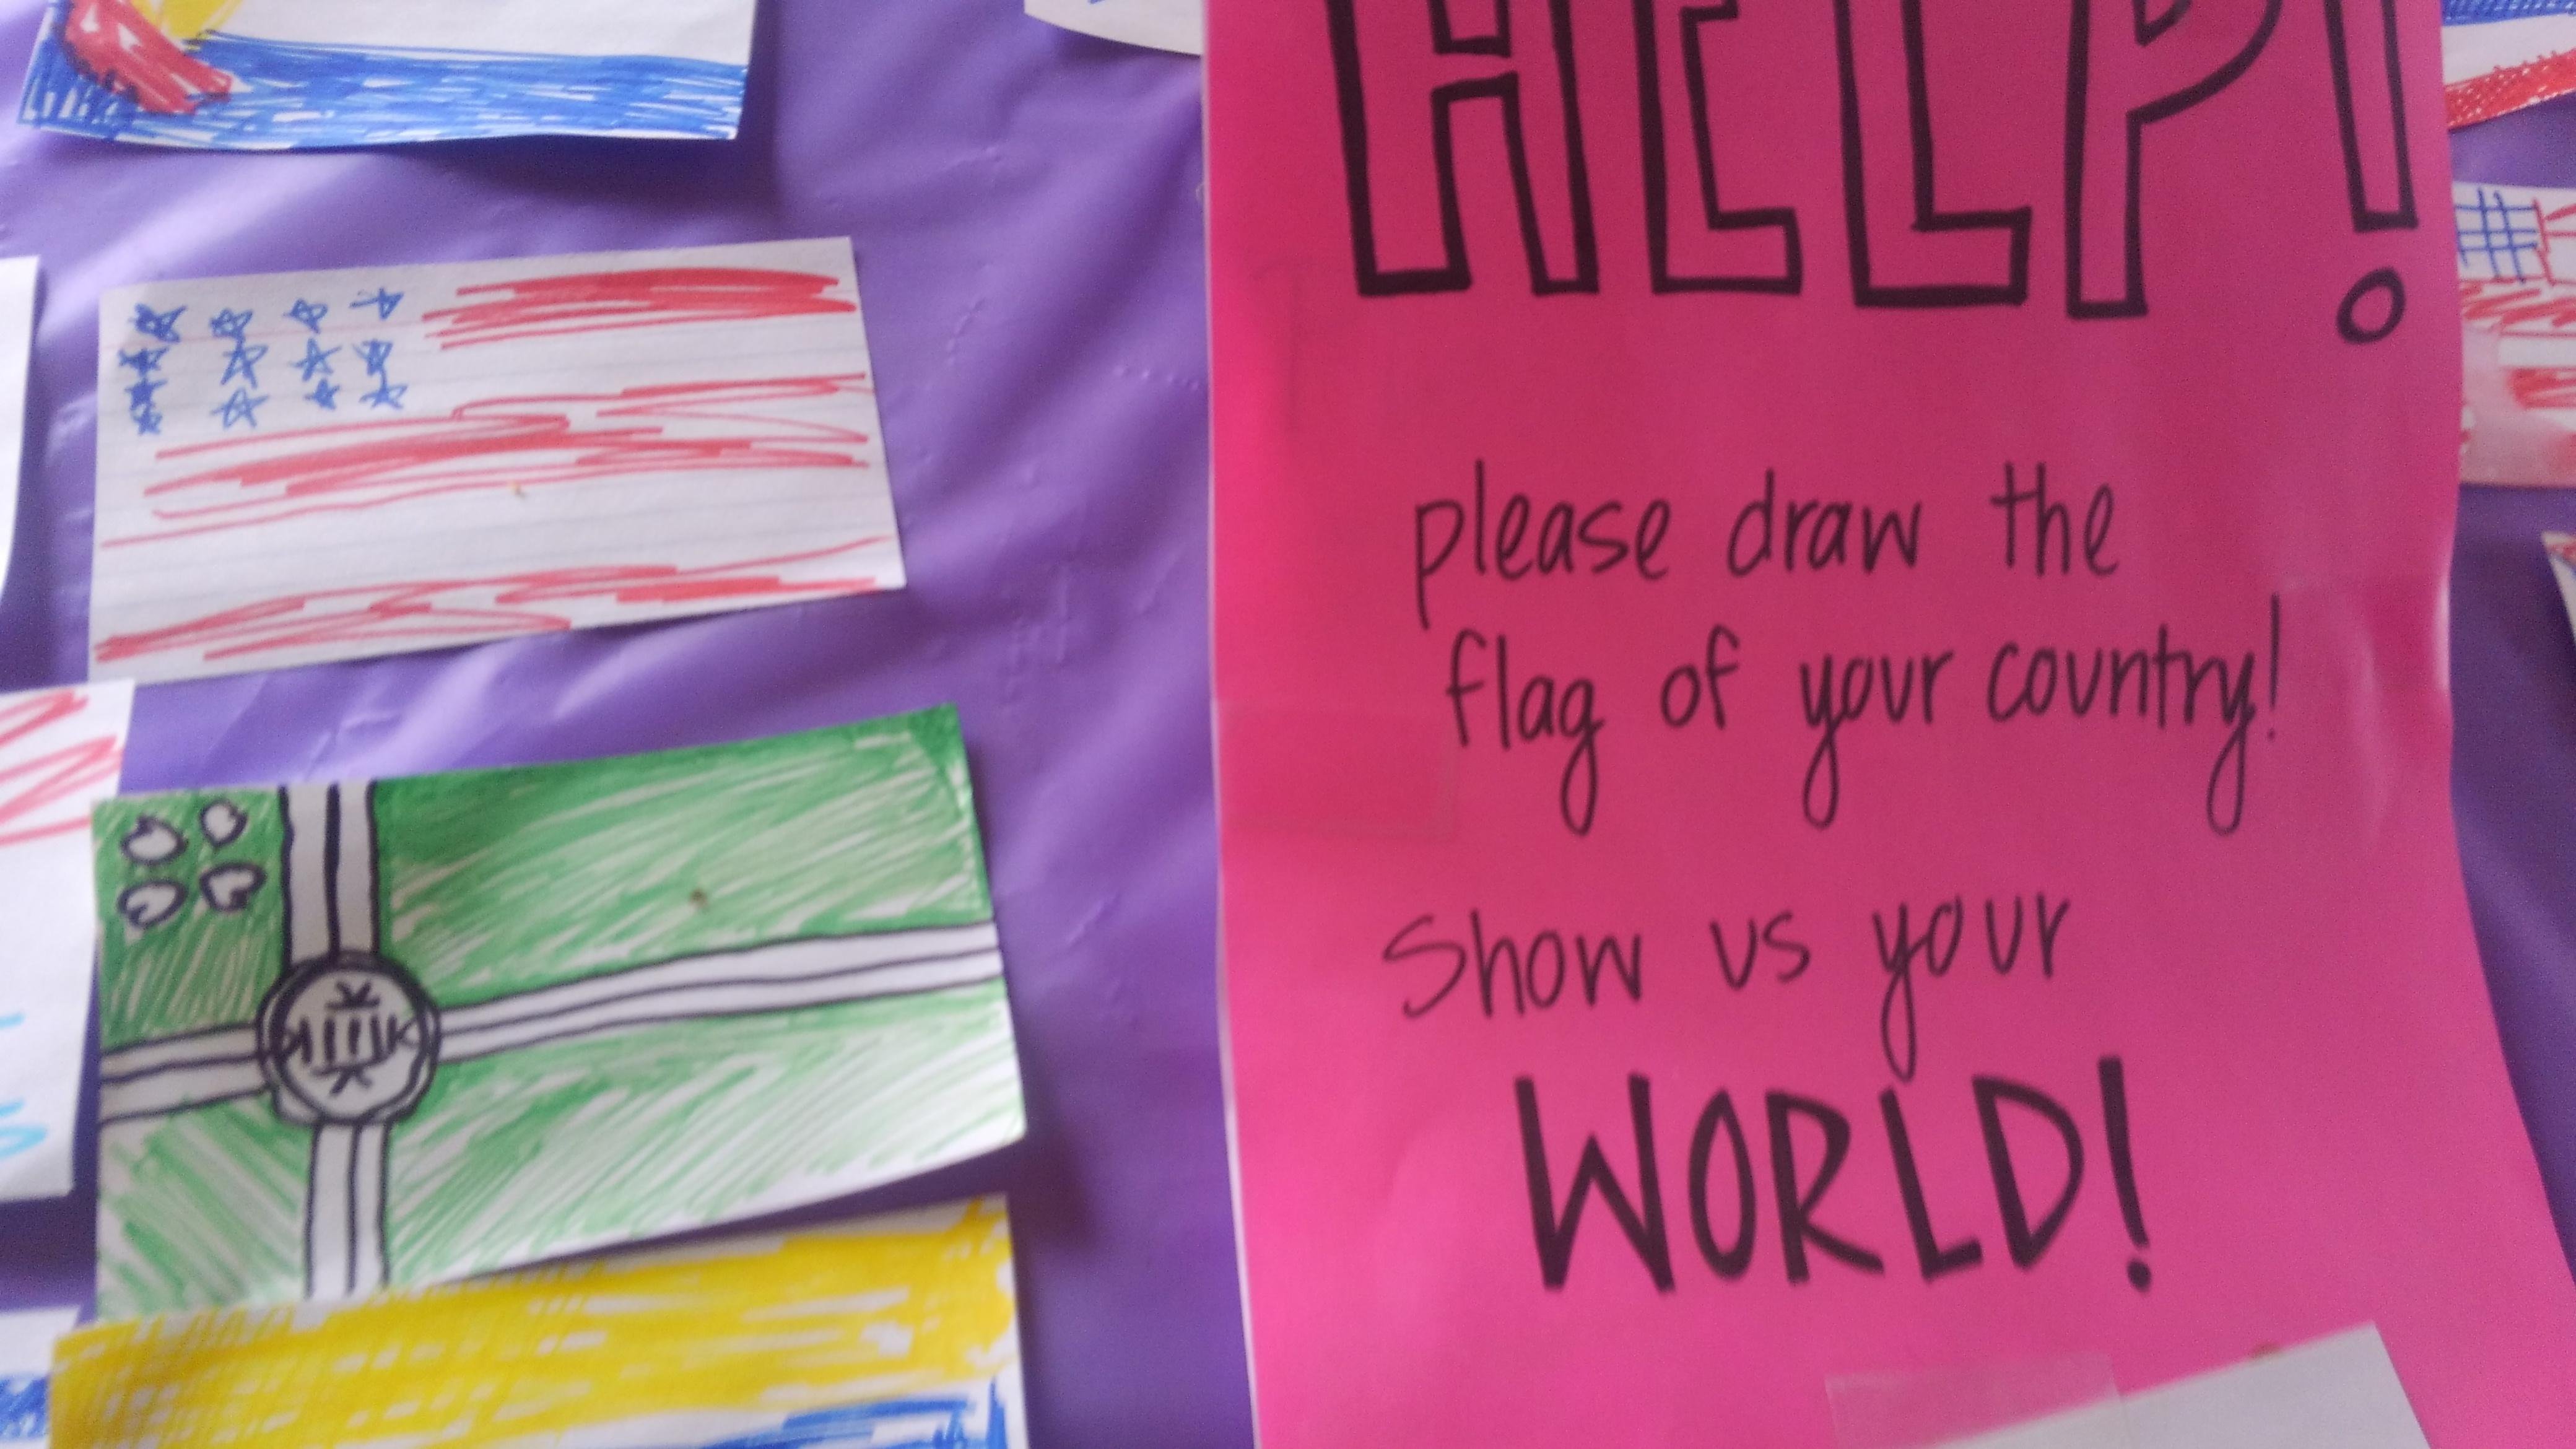 HELP!
please draw the
flag of your country!
Show us your
WORLD!